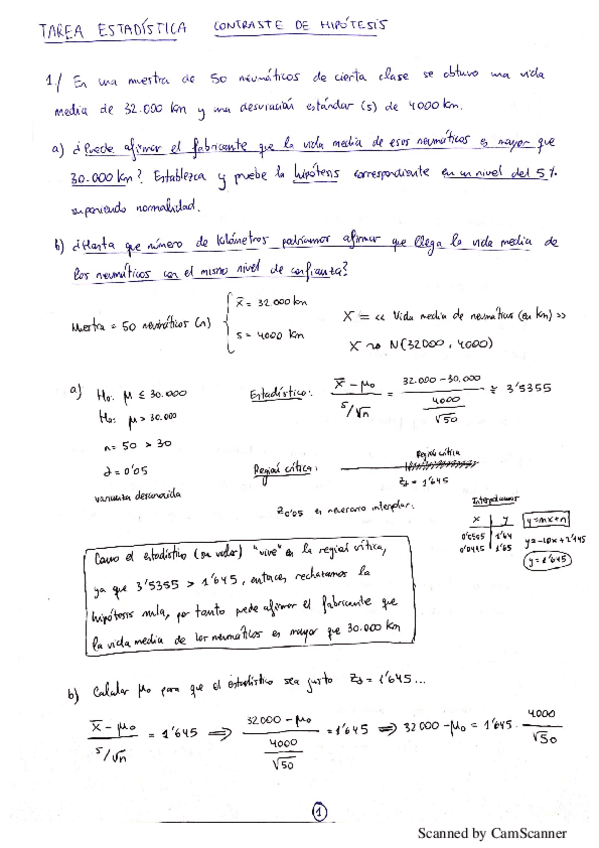 TAREA ESTADÍSTICA CONTRASTE DE HIPÓTESIS
1./ En una muestra de 50 neumáticos de cierta clase se obtuvo una vida
media de 32.000 km y una desviación estándar (s) de 4000 km.
a) ¿Puede afirmar el fabricante que la vida media de esos neumáticos es mayor que
30.000 km? Establezca y pruebe la hipótesis correspondiente en un nivel del 5%
suponiendo normalidad.
b) ¿Hasta que número de kilómetros podríamos afirmar que llega la vida media de
los neumáticos con el mismo nivel de confianza?
Muestra = 50 neumáticos (n) { x̄ = 32.000 km
s = 4000 km
X = << Vida media de neumáticos (en km) >>
X ~ N(32000, 4000)
a) H₀: μ ≤ 30.000
H₀: μ > 30.000
n = 50 > 30
α = 0'05
varianza desconocida
Estadístico: (x̄ - μ₀) / (s/√n) = (32.000 - 30.000) / (4000/√50) ≅ 3'5355
Región crítica:
Región crítica
Zα = 1'645
Z0'05 es necesario interpolar:
Interpolamos
x | y
0'0505 | 1'64
0'0495 | 1'65
y=mx+n
y=-10x+2'145
y=1'645
Como el estadístico (su valor) "vive" en la región crítica,
ya que 3'5355 > 1'645, entonces rechazamos la
hipótesis nula, por tanto puede afirmar el fabricante que
la vida media de los neumáticos es mayor que 30.000 km
b) Calcular μ₀ para que el estadístico sea justo Zα = 1'645...
(x̄ - μ₀) / (s/√n) = 1'645 ⇒ (32000 - μ₀) / (4000/√50) = 1'645 ⇒ 32000 - μ₀ = 1'645 · 4000/√50
1
Scanned by CamScanner